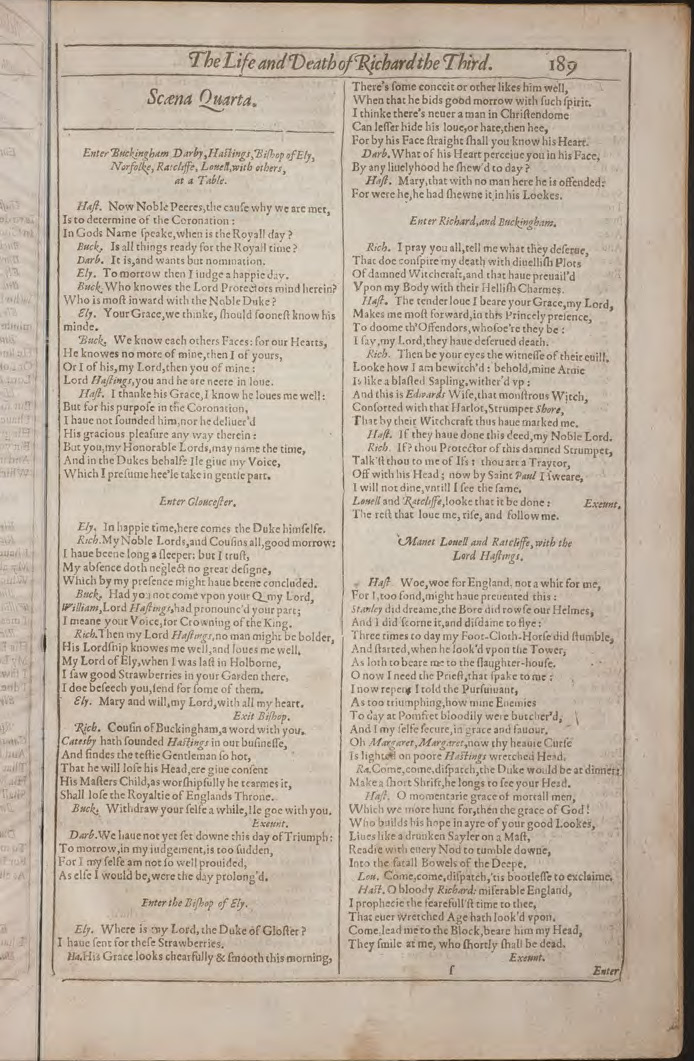 The Life and Death of Richard the Third. 189
Scæna Quarta.
Enter Buckingham Darby, Haſtings, Biſhop of Ely,
Norfolke, Ratcliffe, Louell, with others,
at a Table.
Haſt. Now Noble Peeres, the cauſe why we are met,
Is to determine of the Coronation:
In Gods Name ſpeake, when is the Royall day?
Buck. Is all things ready for the Royall time?
Darb. It is, and wants but nomination.
Ely. To morrow then I iudge a happie day.
Buck. Who knowes the Lord Protectors mind herein?
Who is moſt inward with the Noble Duke?
Ely. Your Grace, we thinke, ſhould ſooneſt know his
minde.
Buck. We know each others Faces: for our Hearts,
He knowes no more of mine, then I of yours,
Or I of his, my Lord, then you of mine:
Lord Haſtings, you and he are neere in loue.
Haſt. I thanke his Grace, I know he loues me well:
But for his purpoſe in the Coronation,
I haue not ſounded him, nor he deliuer'd
His gracious pleaſure any way therein:
But you, my Honorable Lords, may name the time,
And in the Dukes behalfe Ile giue my Voice,
Which I preſume hee'le take in gentle part.
Enter Glouceſter.
Ely. In happie time, here comes the Duke himſelfe.
Rich. My Noble Lords, and Couſins all, good morrow:
I haue beene long a ſleeper: but I truſt,
My abſence doth neglect no great deſigne,
Which by my preſence might haue beene concluded.
Buck. Had you not come vpon your Q my Lord,
William, Lord Haſtings, had pronounc'd your part;
I meane your Voice, for Crowning of the King.
Rich. Then my Lord Haſtings, no man might be bolder,
His Lordſhip knowes me well, and loues me well.
My Lord of Ely, when I was laſt in Holborne,
I ſaw good Strawberries in your Garden there,
I doe beſeech you, ſend for ſome of them.
Ely. Mary and will, my Lord, with all my heart.
Exit Biſhop.
Rich. Couſin of Buckingham, a word with you.
Catesby hath ſounded Haſtings in our buſineſſe,
And findes the teſtie Gentleman ſo hot,
That he will loſe his Head, ere giue conſent
His Maſters Child, as worſhipfully he tearmes it,
Shall loſe the Royaltie of Englands Throne.
Buck. Withdraw your ſelfe a while, Ile goe with you.
Exeunt.
Darb. We haue not yet ſet downe this day of Triumph:
To morrow, in my iudgement, is too ſudden,
For I my ſelfe am not ſo well prouided,
As elſe I would be, were the day prolong'd.
Enter the Biſhop of Ely.
Ely. Where is my Lord, the Duke of Gloſter?
I haue ſent for theſe Strawberries.
Ha. His Grace looks chearfully & ſmooth this morning,
There's ſome conceit or other likes him well,
When that he bids good morrow with ſuch ſpirit.
I thinke there's neuer a man in Chriſtendome
Can leſſer hide his loue, or hate, then hee,
For by his Face ſtraight ſhall you know his Heart.
Darb. What of his Heart perceiue you in his Face,
By any liuelyhood he ſhew'd to day?
Haſt. Mary, that with no man here he is offended:
For were he, he had ſhewne it in his Lookes.
Enter Richard, and Buckingham.
Rich. I pray you all, tell me what they deſerue,
That doe conſpire my death with diuelliſh Plots
Of damned Witchcraft, and that haue preuail'd
Vpon my Body with their Helliſh Charmes.
Haſt. The tender loue I beare your Grace, my Lord,
Makes me moſt forward, in this Princely preſence,
To doome th'Offendors, whoſoe're they be:
I ſay, my Lord, they haue deſerued death.
Rich. Then be your eyes the witneſſe of their euill.
Looke how I am bewitch'd: behold, mine Arme
Is like a blaſted Sapling, wither'd vp:
And this is Edwards Wife, that monſtrous Witch,
Conſorted with that Harlot, Strumpet Shore,
That by their Witchcraft thus haue marked me.
Haſt. If they haue done this deed, my Noble Lord.
Rich. If? thou Protector of this damned Strumpet,
Talk'ſt thou to me of Ifs: thou art a Traytor,
Off with his Head; now by Saint Paul I ſweare,
I will not dine, vntill I ſee the ſame.
Louell and Ratcliffe, looke that it be done: Exeunt.
The reſt that loue me, riſe, and follow me.
Manet Louell and Ratcliffe, with the
Lord Haſtings.
Haſt Woe, woe for England, not a whit for me,
For I, too fond, might haue preuented this:
Stanley did dreame, the Bore did rowſe our Helmes,
And I did ſcorne it, and diſdaine to flye:
Three times to day my Foot-Cloth-Horſe did ſtumble,
And ſtarted, when he look'd vpon the Tower,
As loth to beare me to the ſlaughter-houſe.
O now I need the Prieſt, that ſpake to me:
I now repent I told the Purſuiuant,
As too triumphing, how mine Enemies
To day at Pomfret bloodily were butcher'd,
And I my ſelfe ſecure, in grace and fauour.
Oh Margaret, Margaret, now thy heauie Curſe
Is lighted on poore Haſtings wretched Head.
Ra. Come, come, diſpatch, the Duke would be at dinner:
Make a ſhort Shrift, he longs to ſee your Head.
Haſt. O momentarie grace of mortall men,
Which we more hunt for, then the grace of God!
Who builds his hope in ayre of your good Lookes,
Liues like a drunken Sayler on a Maſt,
Readie with euery Nod to tumble downe,
Into the fatall Bowels of the Deepe.
Lou. Come, come, diſpatch, 'tis bootleſſe to exclaime.
Haſt. O bloody Richard: miſerable England,
I prophecie the fearefull'ſt time to thee,
That euer wretched Age hath look'd vpon.
Come, lead me to the Block, beare him my Head,
They ſmile at me, who ſhortly ſhall be dead.
Exeunt.
ſ Enter